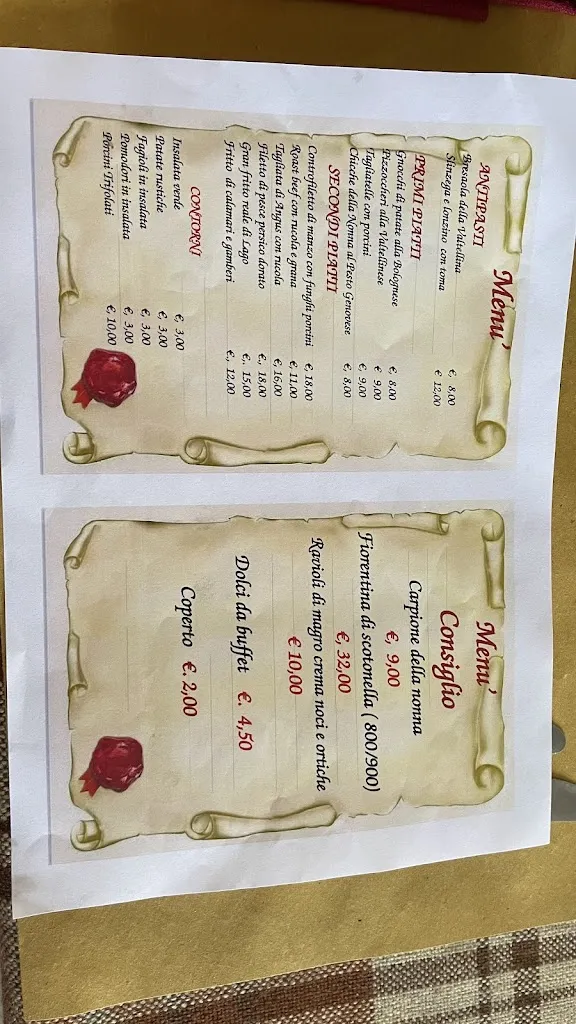 Menu'
ANTIPASTI
Bresaola della Valtellina €, 8,00
Slinzega e lonzino con toma € 12,00
PRIMI PIATTI
Gnocchi di patate alla Bolognese €, 8,00
Pizzoccheri alla Valtellinese € 9,00
Tagliatelle con porcini €, 9,00
Chicche della Nonna al Pesto Genovese €, 8,00
SECONDI PIATTI
Controfiletto di manzo con funghi porcini €, 18,00
Roast beef con rucola e grana €, 11,00
Tagliata di Angus con rucola €, 16,00
Filetto di pesce persico dorato €., 18,00
Gran fritto reale di Lago €., 15,00
Fritto di calamari e gamberi €., 12,00
CONTORNI
Insalata verde €, 3,00
Patate rustiche €, 3,00
Fagioli in insalata €, 3,00
Pomodori in insalata €, 3,00
Porcini Trifolati €, 10,00
Menu'
Consiglio
Carpione della nonna
€, 9,00
Fiorentina di scotonella ( 800/900)
€, 32,00
Ravioli di magro crema noci e ortiche
€ 10,00
Dolci da buffet €. 4,50
Coperto €. 2,00